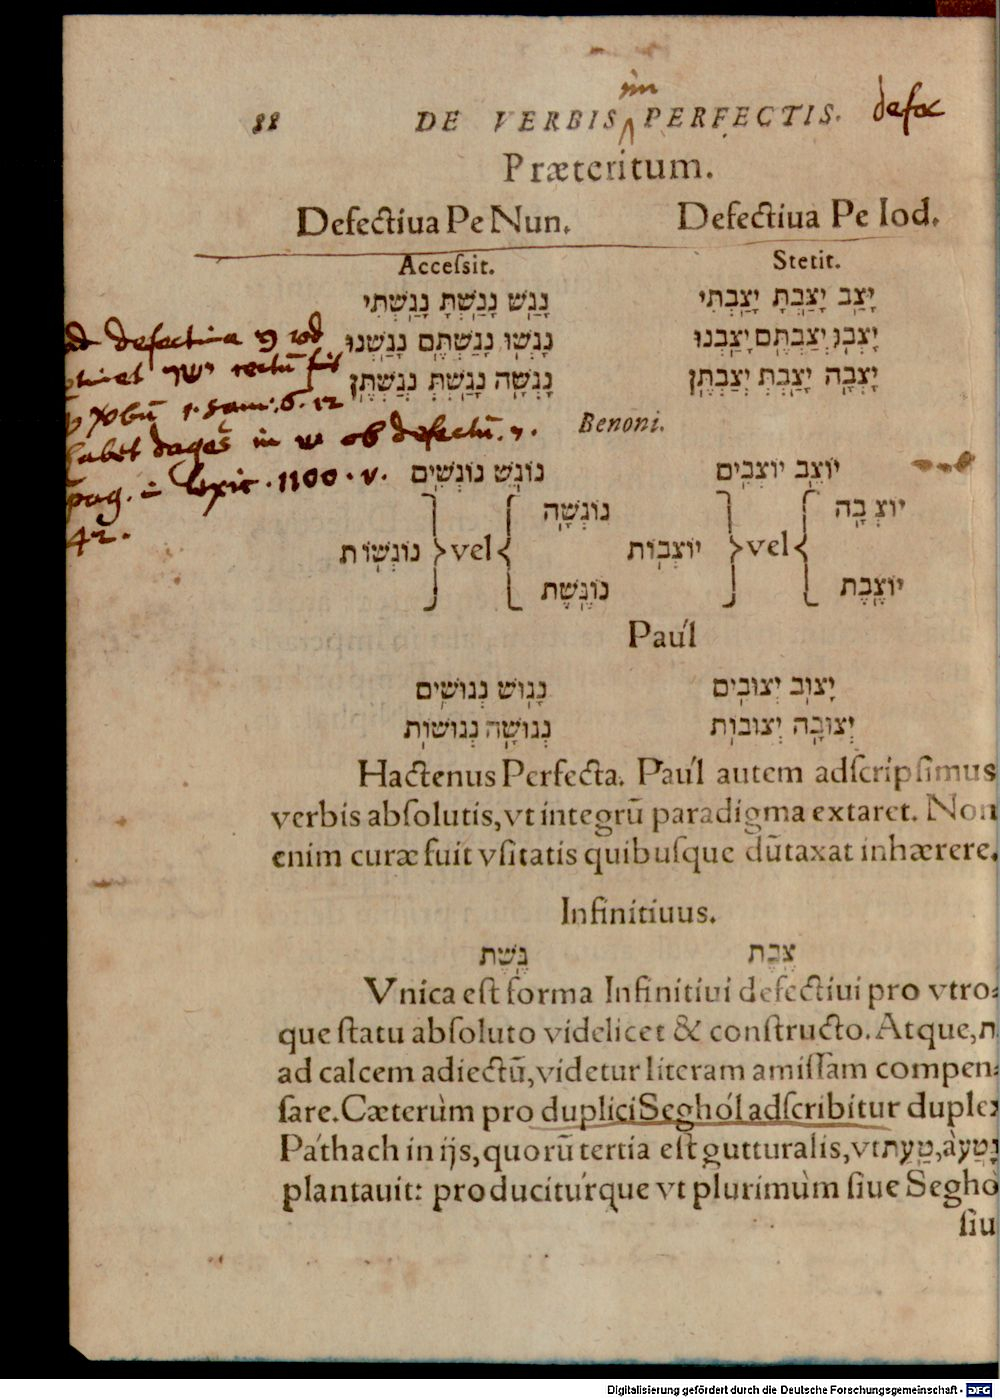 88 DE VERBIS im PERFECTIS. defec
Præteritum.
Defectiua Pe Nun. Defectiua Pe Iod.
Accessit. Stetit.
נָגַשׁ נָגַשְׁתָּ נָגַשְׁתִּי יָצַב יָצַבְתָּ יָצַבְתִּי
נָגְשׁוּ נְגַשְׁתֶּם נָגַשְׁנוּ יָצְבוּ יְצַבְתֶּם יָצַבְנוּ
נָגְשָׁה נָגַשְׁתְּ נְגַשְׁתֶּן יָצְבָה יָצַבְתְּ יְצַבְתֶּן
ad defectiua פ iod
ישר rectū fuit
1. Sam. 6. 12
habet dages in ש ob defectū י.
pag. in Lexic. 1100. v.
42.
Benoni.
נוֹגֵשׁ נוֹגְשִׁים יוֹצֵב יוֹצְבִים
נוֹגְשָׁה יוֹצְבָה
נוֹגְשׁוֹת } vel { יוֹצְבוֹת } vel {
נוֹגֶשֶׁת יוֹצֶבֶת
Paúl
נָגוּשׁ נְגוּשִׁים יָצוּב יְצוּבִים
נְגוּשָׁה נְגוּשׁוֹת יְצוּבָה יְצוּבוֹת
Hactenus Perfecta. Paúl autem adscripsimus
verbis absolutis, vt integrū paradigma extaret. Non
enim curæ fuit vsitatis quibusque dūtaxat inhærere.
Infinitiuus.
גֶּשֶׁת צֶבֶת
Vnica est forma Infinitiui defectiui pro vtro-
que statu absoluto videlicet & constructo. Atque, ת
ad calcem adiectū, videtur literam amissam compen-
sare. Cæterùm pro duplici Seghól adscribitur duplex
Páthach in ijs, quorū tertia est gutturalis, vt טַעַת, à נָטַע
plantauit: producitúrque vt plurimùm siue Segho
siu